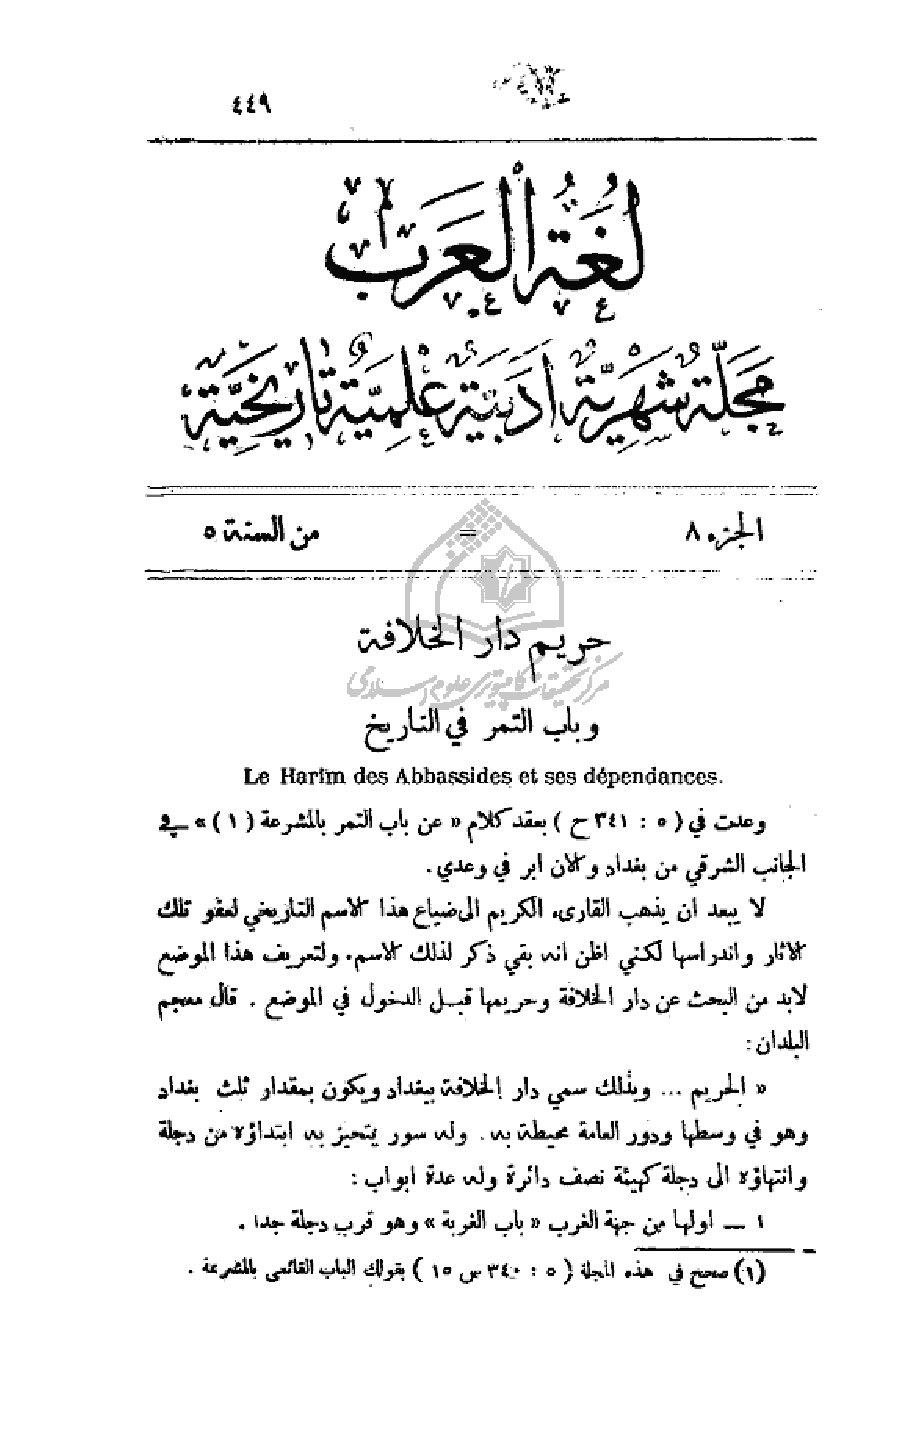 ٤٤٩
لُغَةُ العَرَب
مَجَلَّة شَهْرِيَّة أَدَبِيَّة عِلْمِيَّة تَارِيخِيَّة
الجزء ٨ = من السنة ٥
حريم دار الخلافة
مركز تحقيقات كامپيوتری علوم اسلامی
وباب التمر في التاريخ
Le Harîm des Abbassides et ses dépendances.
وعدت في ( ٥ : ٣٤١ ح ) بعقد كلام « عن باب التمر بالمشرعة ( ١ ) » في
الجانب الشرقي من بغداد والان ابر في وعدي .
لا يبعد ان يذهب القارىء الكريم الى ضياع هذا الاسم التاريخي لعفو تلك
الاثار واندراسها لكني اظن انه بقي ذكر لذلك الاسم . ولتعريف هذا الموضع
لابد من البحث عن دار الخلافة وحريمها قبل الدخول في الموضع . قال معجم
البلدان :
« الحريم ... وبذلك سمي دار الخلافة ببغداد ويكون بمقدار ثلث بغداد
وهو في وسطها ودور العامة محيطة به . وله سور يتحيز به ابتداؤه من دجلة
وانتهاؤه الى دجلة كهيئة نصف دائرة وله عدة ابواب :
١ — اولها من جهة الغرب « باب الغربة » وهو قرب دجلة جدا .
(١) صحح في هذه المجلة ( ٥ : ٣٤٠ س ١٥ ) بقولك الباب القائمى بالمشرعة .